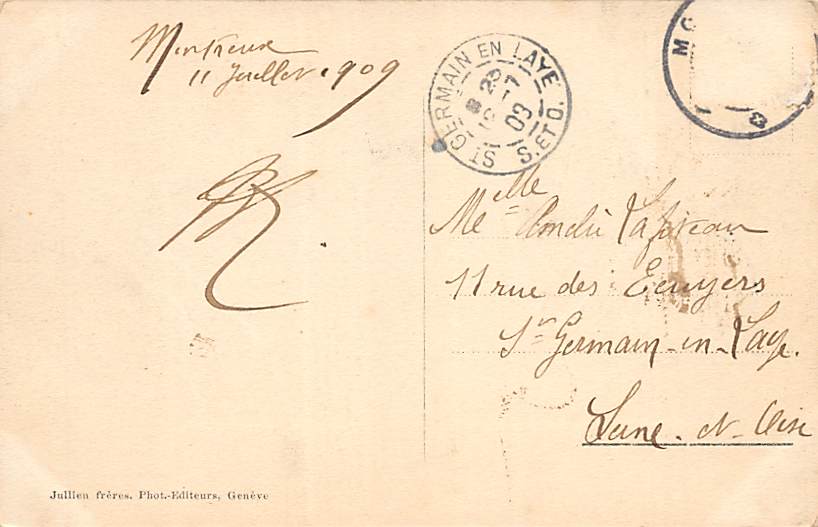 Montreux
11 Juillet 1909
ST GERMAIN EN LAYE
8 25
12 -7
09
S. ET O.
MO
Melle Andrée
11 rue des Ecuyers
St Germain-en-Laye.
Seine-et-Oise
Jullien frères, Phot.-Editeurs, Genève